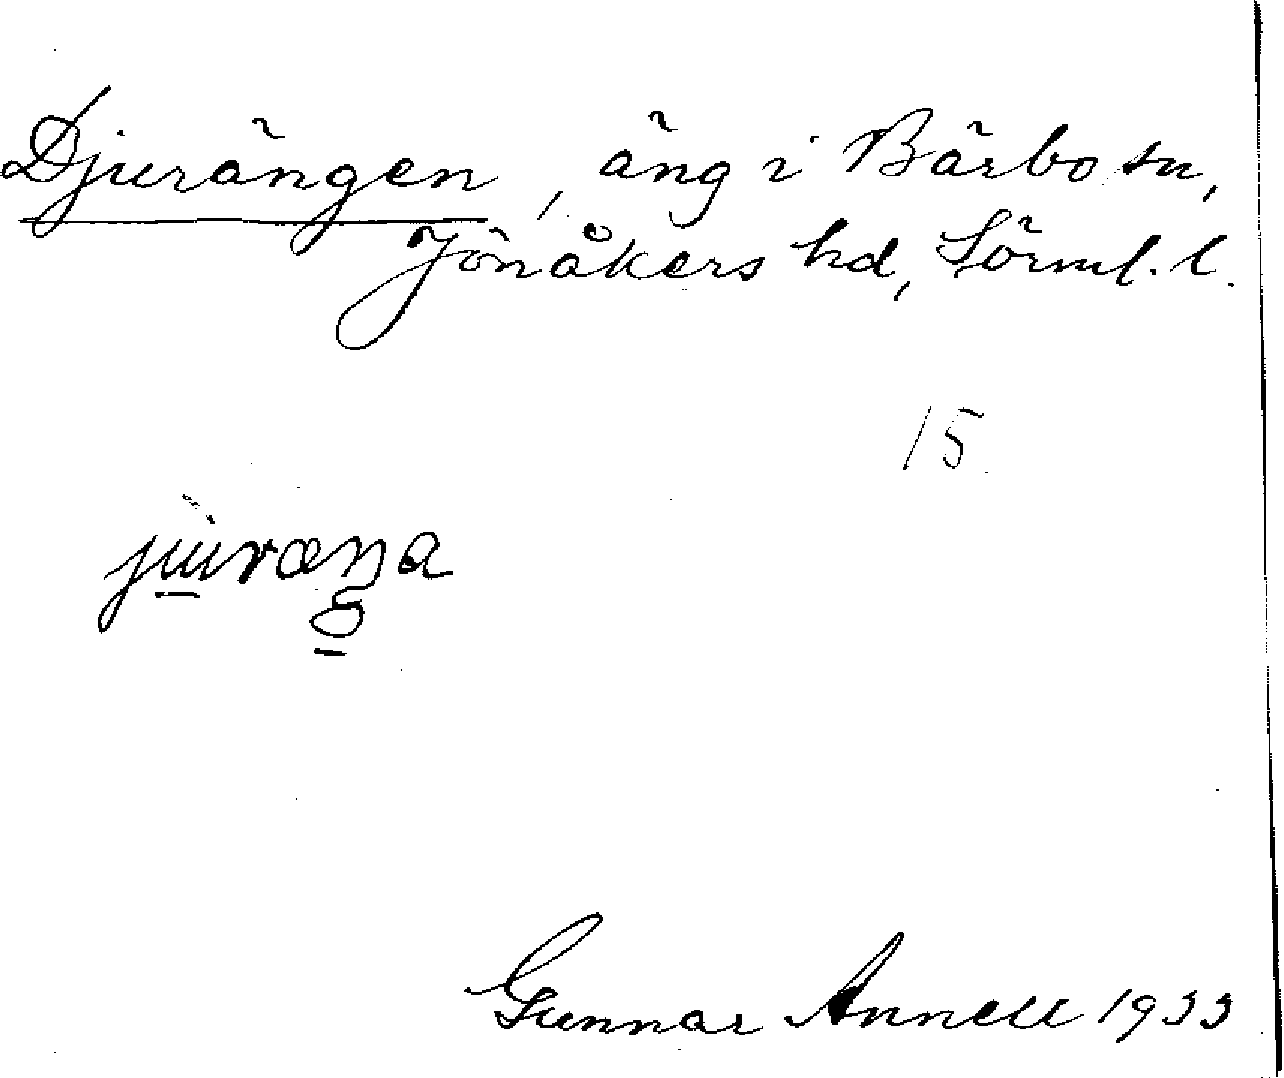 Djurängen, äng i Bärbo sn,
Jönåkers hd, Sörml. l.
15
jùræŋa
Gunnar Annell 1933